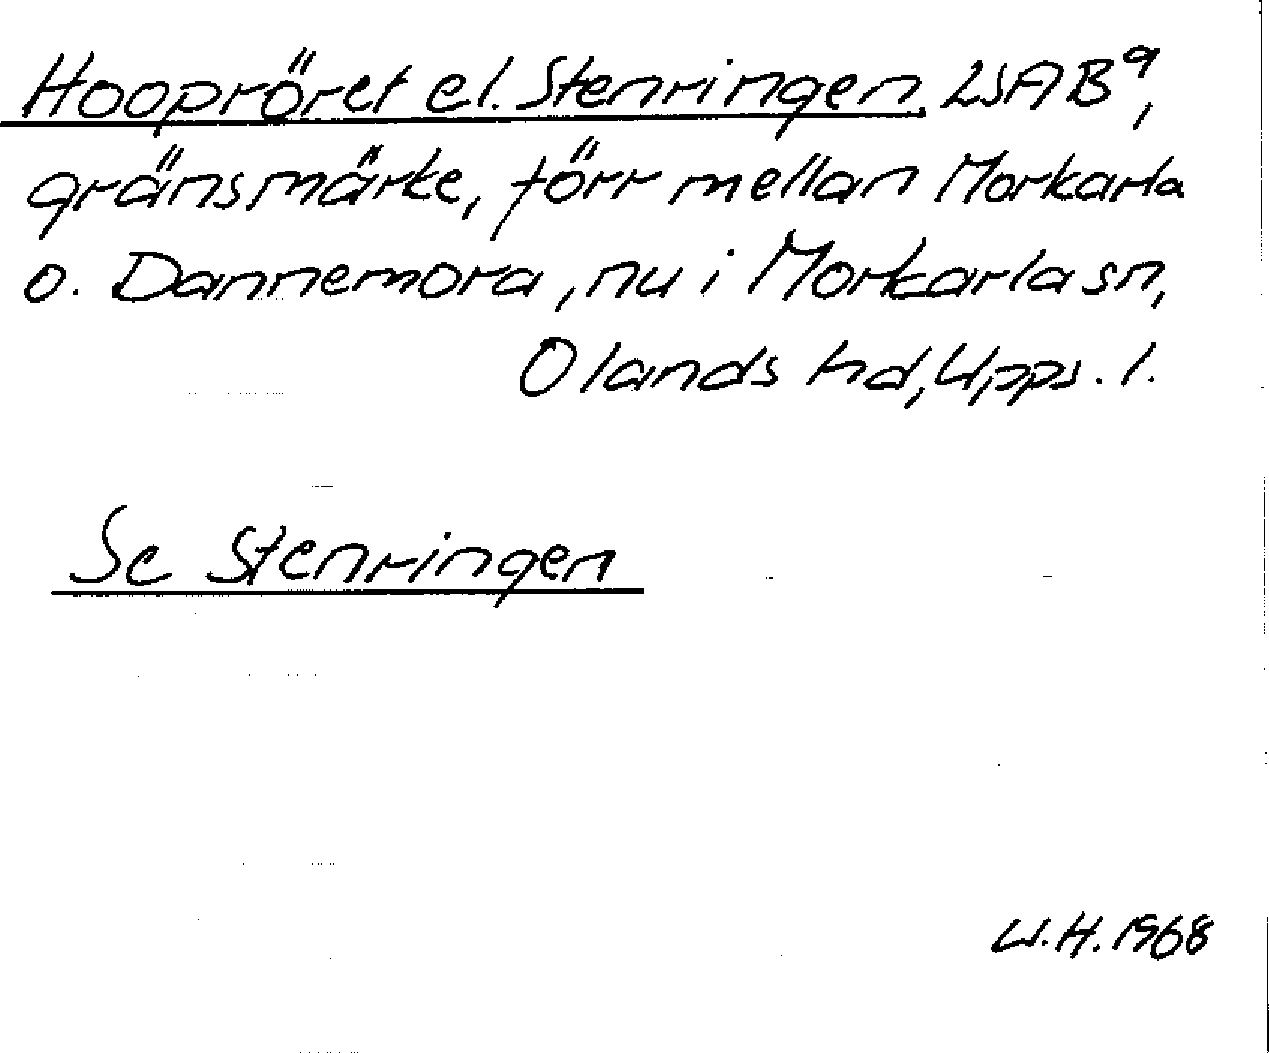 Hoopröret el. Stenringen, LSAB⁹,
gränsmärke, förr mellan Morkarla
o. Dannemora, nu i Morkarla sn,
Olands hd, Upps. l.
Se Stenringen
W.H. 1968